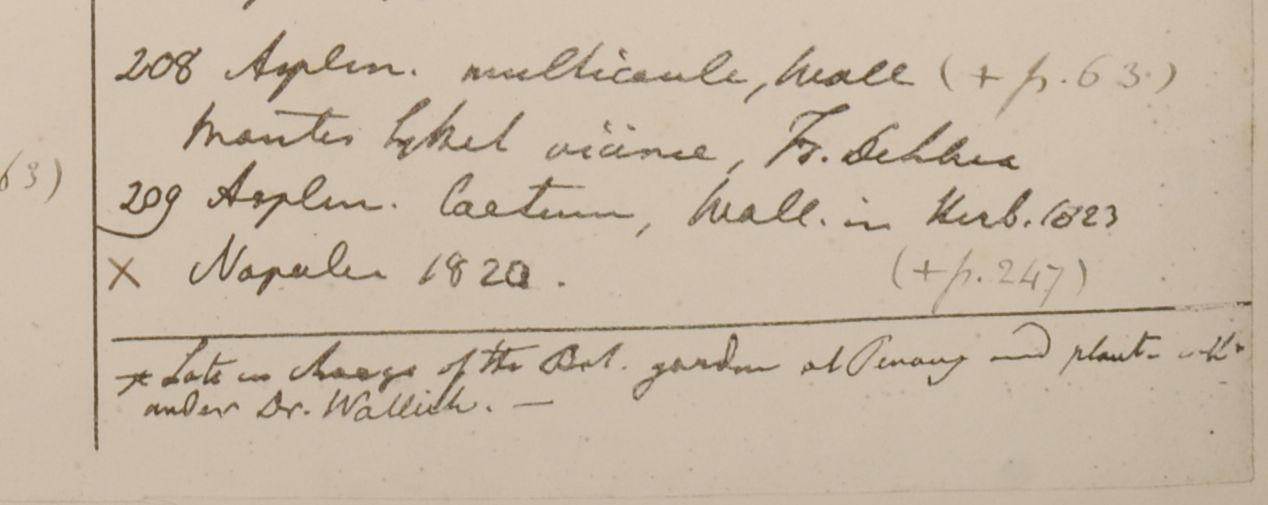 208 Asplen. multicaule, Wall (+ p. 63.)
Montes Sylhet vicinæ, Fr. De Silva
63)
209 Asplen. laetum, Wall. in Herb. 1823
× Napalia 1820. (+ p. 247)
* Late in charge of the Bot. garden at Penang and plant
under Dr. Wallich. —